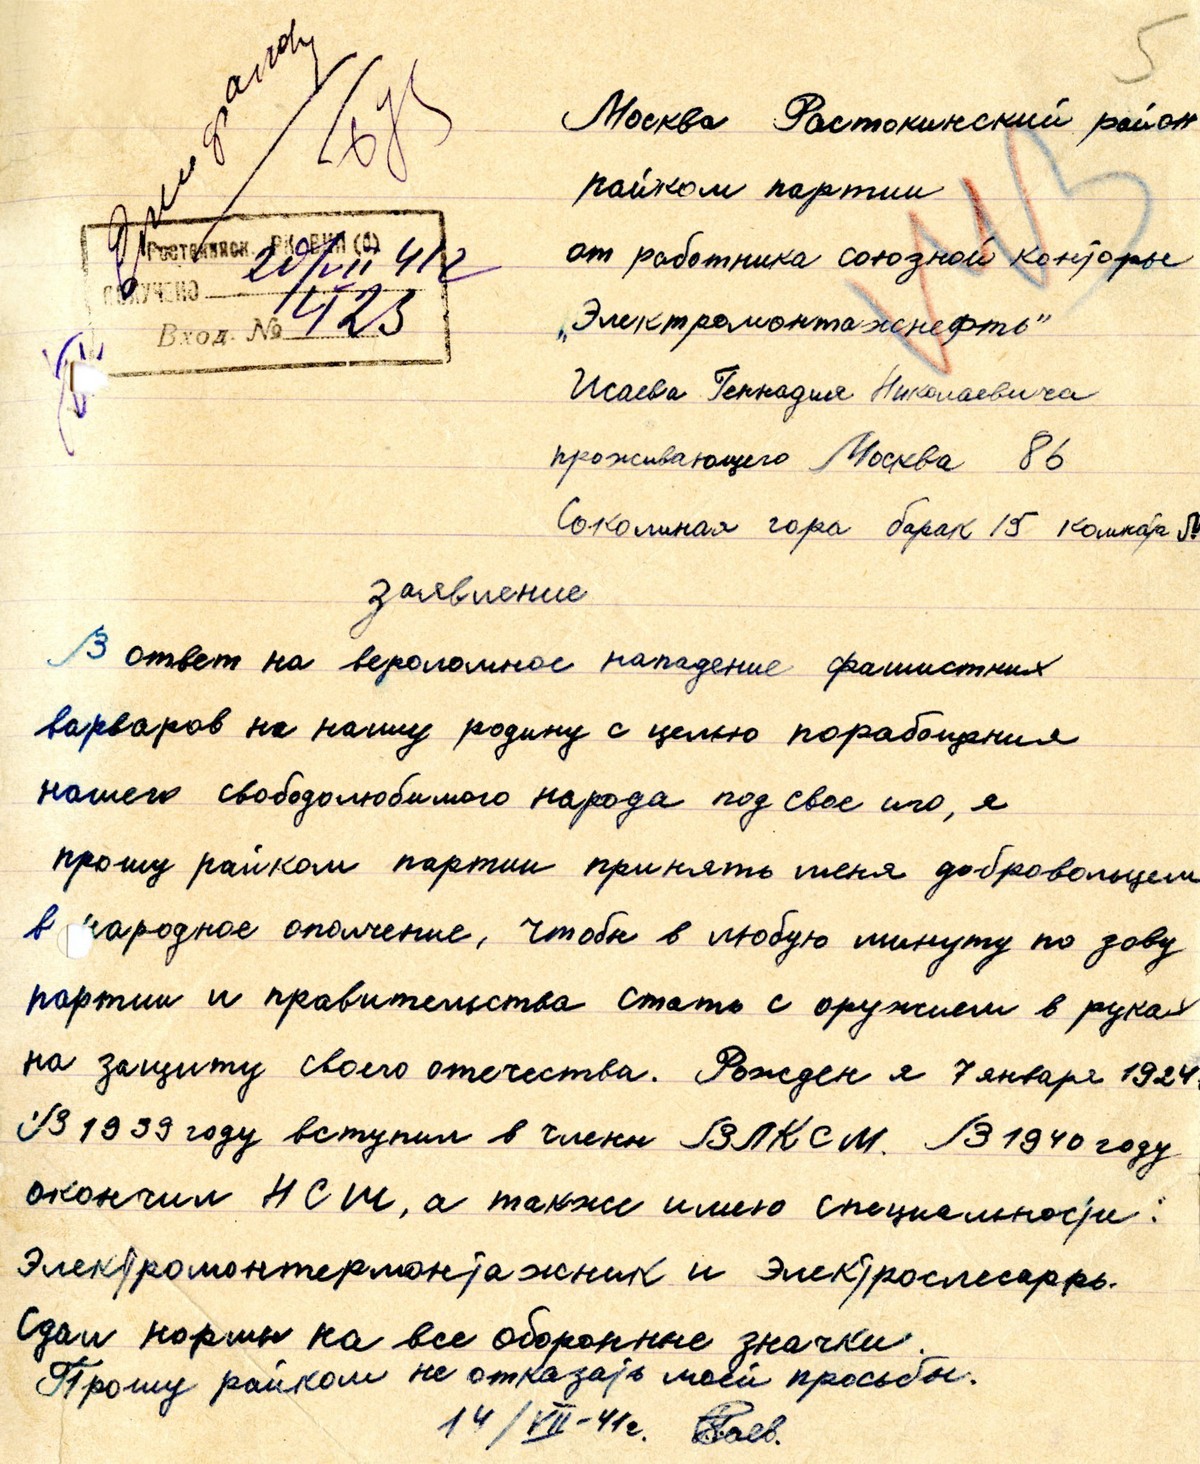 5
Москва Растокинский район
райком партии
от работника союзной конторы
„Электромонтажнефть"
Исаева Геннадия Николаевича
проживающего Москва 86
Соколиная гора барак 15 комната №
Ростокинск. РК ВКП(б)
ПОЛУЧЕНО 20/VII 41г
Вход. № 1423
заявление
В ответ на вероломное нападение фашистких
варваров на нашу родину с целью порабощения
нашего свободолюбимого народа под свое иго, я
прошу райком партии принять меня добровольцем
в народное ополчение, чтобы в любую минуту по зову
партии и правительства стать с оружием в руках
на защиту своего отечества. Рожден я 7 января 1924.
В 1939 году вступил в члены ВЛКСМ. В 1940 году
окончил НСШ, а также имею специальности:
Электромонтермонтажник и электрослесаррь.
Сдал нормы на все оборонные значки.
Прошу райком не отказать моей просьбы.
14/VII-41г.